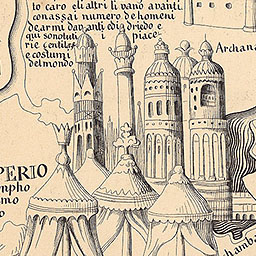 to caro eli altri li vano avanti.
conassai numero de homeni
dearmi davanti edia driedo e
qui sono tuti piace
rie gentileß
e costumi
del mondo
Archana
PERIO
mpho
mo
o
chamba